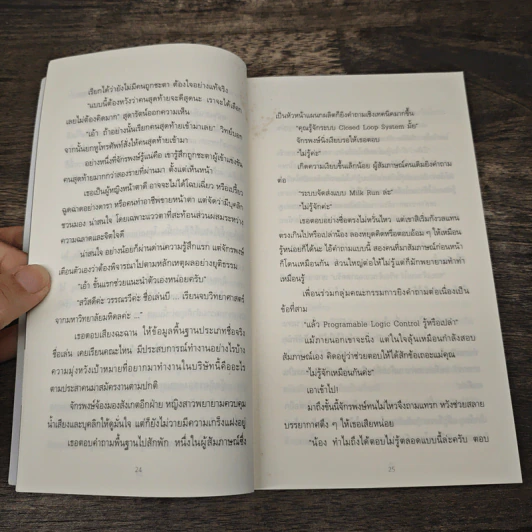 เรียกได้ว่ายังไม่มีคนถูกชะตา ต้องใจอย่างแท้จริง
"แบบนี้ต้องหวังว่าคนสุดท้ายจะดีสุดนะ เราจะได้เลือก
เลยไม่ต้องคิดมาก" สุดารัตน์ออกความเห็น
"เอ้า ถ้าอย่างนั้นเรียกคนสุดท้ายเข้ามาเลย" วิทย์บอก
จากนั้นยกหูโทรศัพท์สั่งให้คนสุดท้ายเข้ามา
อย่างหนึ่งที่จักรพงษ์รู้แน่คือ เขารู้สึกถูกชะตาผู้เข้าแข่งขัน
คนสุดท้ายมากกว่าสองรายที่ผ่านมา ตั้งแต่เห็นหน้า
เธอเป็นผู้หญิงหน้าตาดี อาจจะไม่ได้โฉบเฉี่ยว หรือเปรี้ยว
ฉูดฉาดอย่างดารา หรือคนทำอาชีพขายหน้าตา แต่จัดว่ามีบุคลิก
ชวนมอง น่าสนใจ โดยเฉพาะแววตาที่สะท้อนส่วนผสมระหว่าง
ความฉลาดและจิตใจดี
น่าสนใจ อย่างน้อยก็ผ่านด่านความรู้สึกแรก แต่จักรพงษ์
เตือนตัวเองว่าต้องพิจารณาไปตามหลักเหตุผลอย่างยุติธรรม
"เอ้า ขั้นแรกช่วยแนะนำตัวเองหน่อยครับ"
"สวัสดีค่ะ วรรณรวีค่ะ ชื่อเล่นบี ... เรียนจบวิทยาศาสตร์
จากมหาวิทยาลัยมหิดลค่ะ ..."
เธอตอบเสียงฉะฉาน ให้ข้อมูลพื้นฐานประเภทชื่อจริง
ชื่อเล่น เคยเรียนคณะไหน มีประสบการณ์ทำงานอย่างไรบ้าง
ความมุ่งหวังเป้าหมายที่อยากมาทำงานในบริษัทนี้คืออะไร
ตามประสาคนมาสมัครงานตามปกติ
จักรพงษ์จ้องมองสังเกตอีกฝ่าย หญิงสาวพยายามควบคุม
น้ำเสียงและบุคลิกให้ดูมั่นใจ แต่ก็ยังไม่วายมีความเกร็งแฝงอยู่
เธอตอบคำถามพื้นฐานไปสักพัก หนึ่งในผู้สัมภาษณ์ซึ่ง
24
เป็นหัวหน้าแผนกผลิตก็ยิงคำถามเชิงเทคนิคมากขึ้น
"คุณรู้จักระบบ Closed Loop System มั้ย"
จักรพงษ์นิ่งเงียบรอให้เธอตอบ
"ไม่รู้ค่ะ"
เกิดความเงียบขึ้นเล็กน้อย ผู้สัมภาษณ์คนเดิมยิงคำถาม
ต่อ
"ระบบจัดส่งแบบ Milk Run ล่ะ"
"ไม่รู้จักค่ะ"
เธอตอบอย่างซื่อตรงไม่หวั่นไหว แต่เขาสิเริ่มกังวลแทน
ตรงเกินไปหรือเปล่าน้อง ลองหยุดคิดหรือตอบอ้อม ๆ ให้เหมือน
รู้หน่อยก็ได้นะ ไอ้คำถามแบบนี้ สองคนที่มาสัมภาษณ์ก่อนหน้า
ก็โดนเหมือนกัน ส่วนใหญ่ต่อให้ไม่รู้แต่ก็มักพยายามทำท่า
เหมือนรู้
เพื่อนร่วมกลุ่มคณะกรรมการยิงคำถามต่อเนื่องเป็น
ข้อที่สาม
"แล้ว Programable Logic Control รู้หรือเปล่า"
แม้ภายนอกเขาจะนิ่ง แต่ในใจลุ้นเหมือนกำลังสอบ
สัมภาษณ์เอง คิดอยู่ว่าช่วยตอบให้ได้สักข้อเถอะแม่คุณ
"ไม่รู้จักเหมือนกันค่ะ"
เอาเข้าไป!
มาถึงขั้นนี้จักรพงษ์ทนไม่ไหวจึงถามแทรก หวังช่วยสลาย
บรรยากาศตึง ๆ ให้เธอเสียหน่อย
"น้อง ทำไมถึงได้ตอบไม่รู้ตลอดแบบนี้ล่ะครับ ตอบ
25